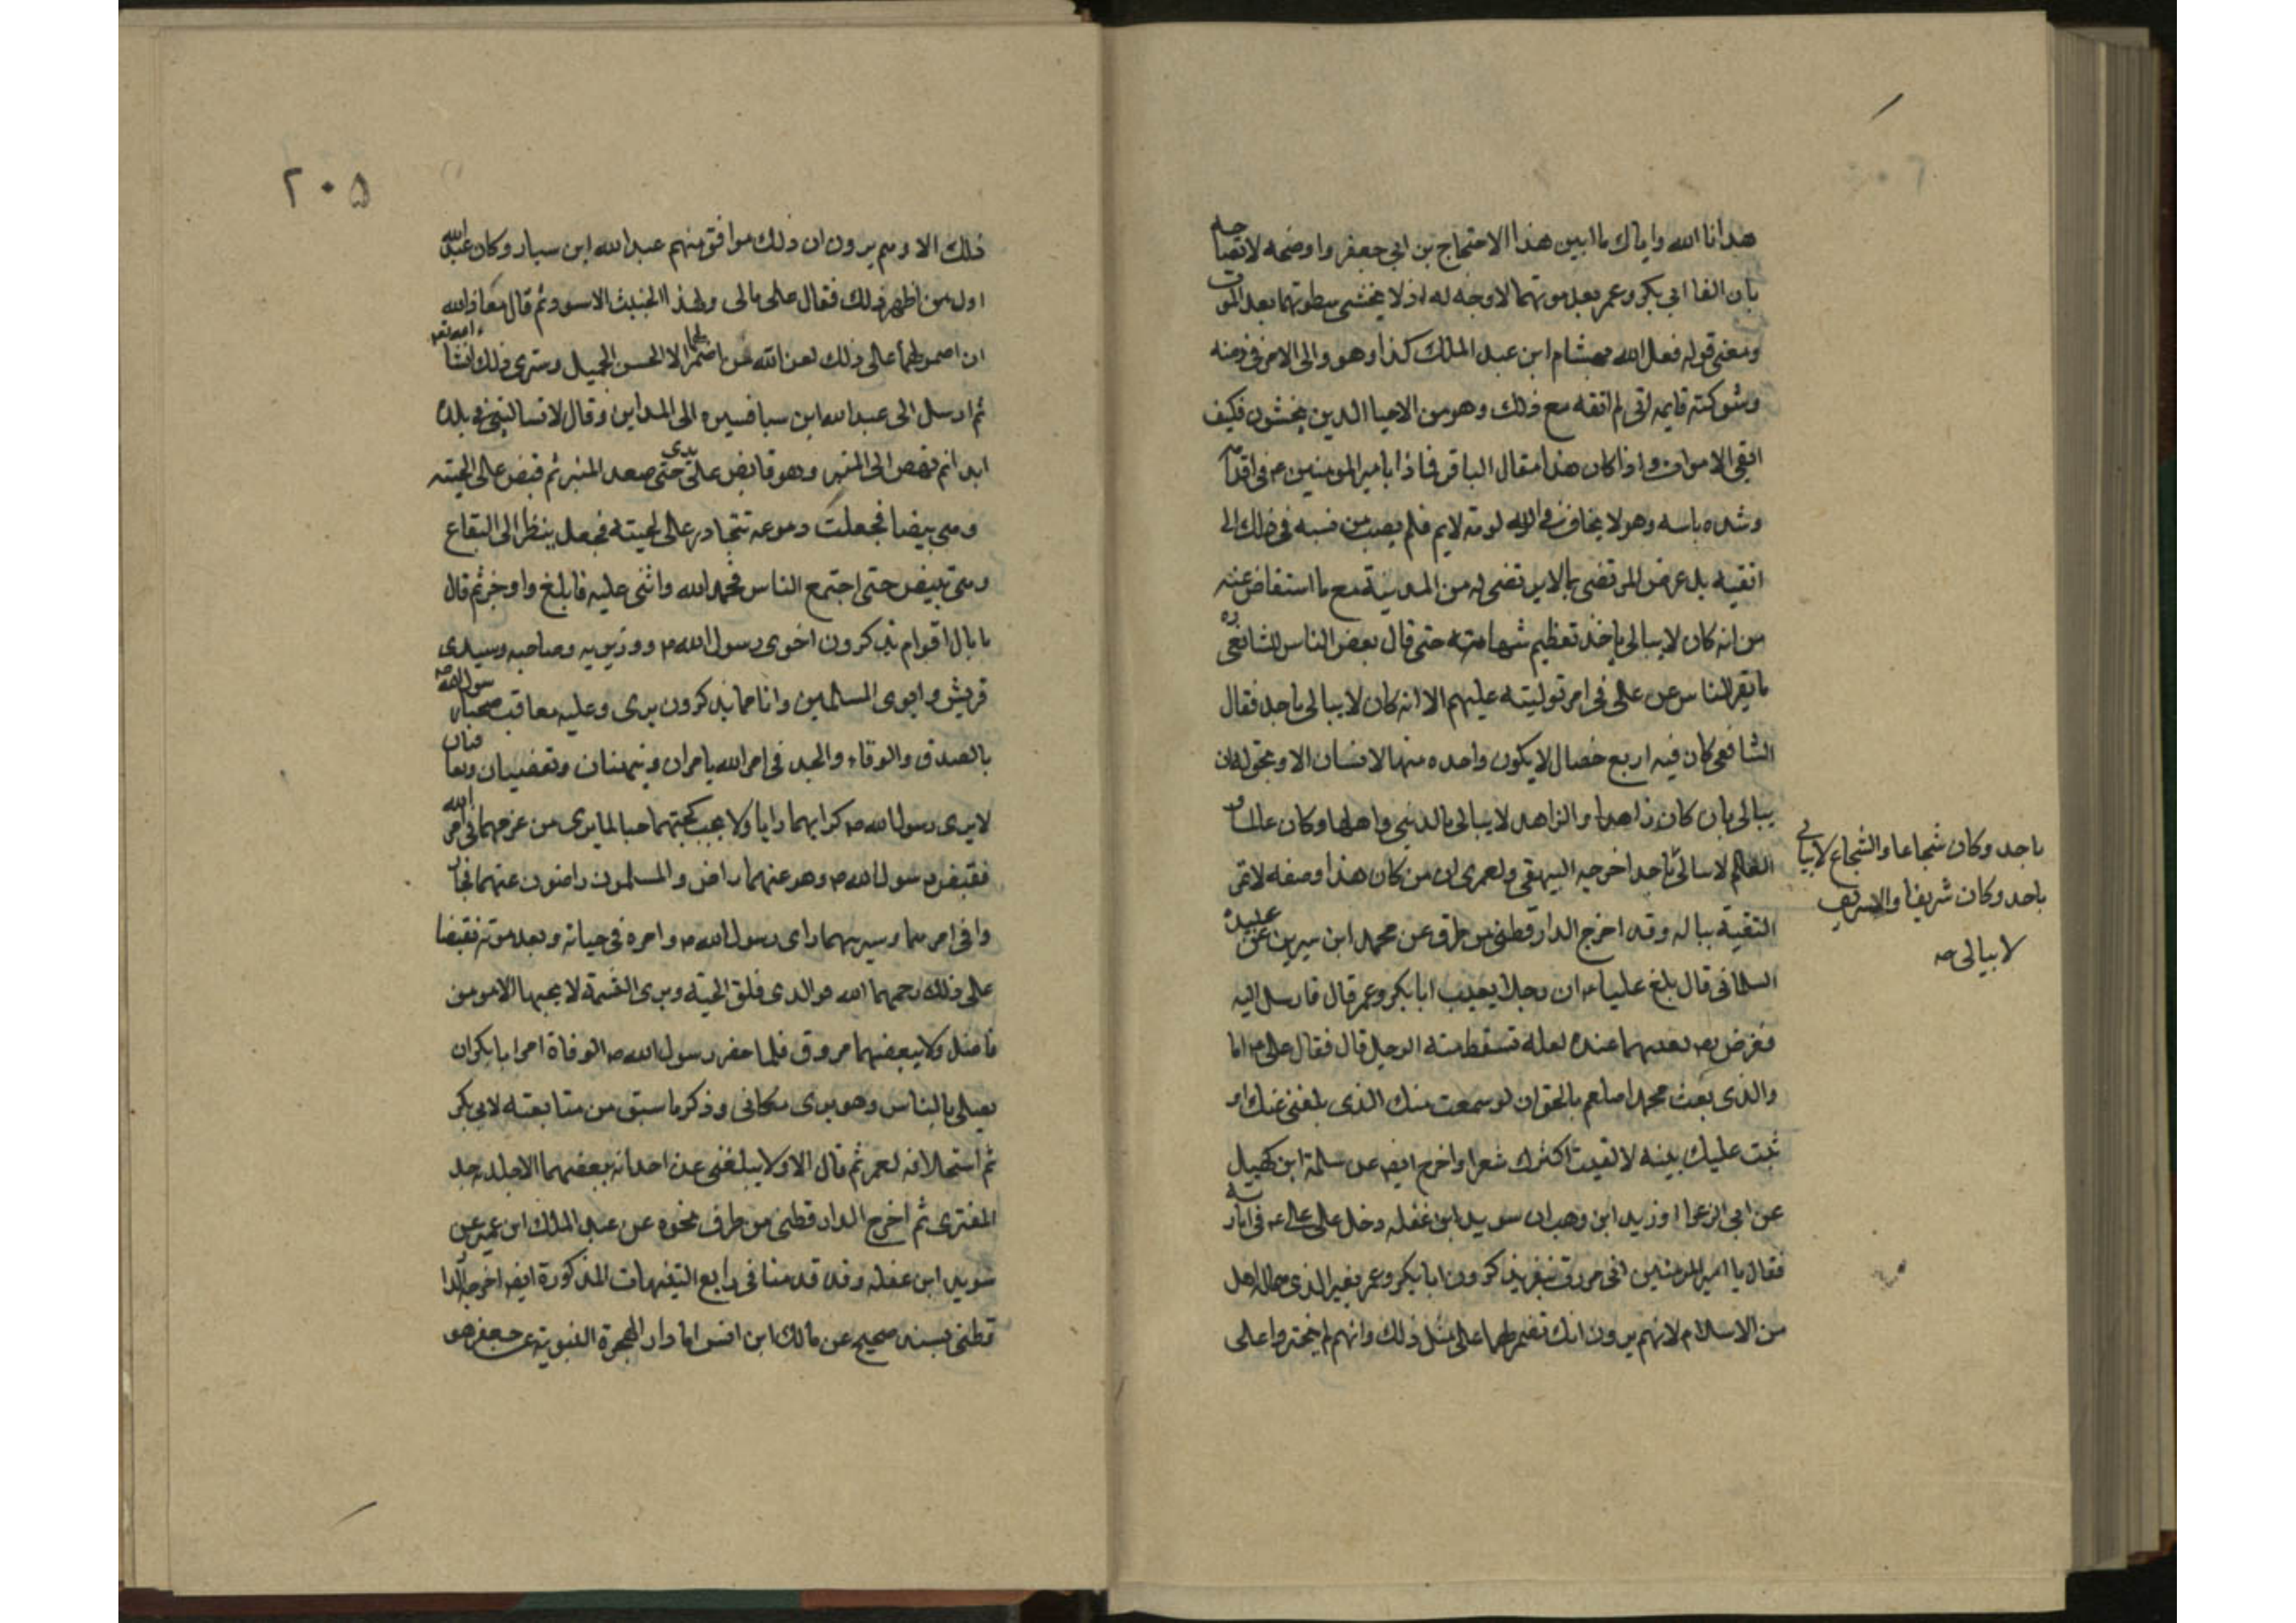 هدانا الله واياك ما ابين هذا الاحتجاج بن ابي جعفر واوضحه لاتضاحه
بان اتقا ابي بكر وعمر بعد موتهما لا وجه له اذ لا يخشى سطوتهما بعد الموت
ومعنى قوله فعل الله بهشام ابن عبد الملك كذا وهو والى الامر في زمنه
وشوكته قايمه اني لم اتقه مع ذلك وهو من الاحيا الذين يخشون فكيف
اتقي الاموات واذا كان هذا مقال الباقر فما ذا بامير المومنين ع في اقدا
وشده باسه وهو لا يخاف في الله لومة لايم فلم يصب من نسبه في ذلك الى
اتقيه بل عرض المرتضى بما لا يرتضى له من المدينة مع ما استفاض عنه
من انه كان لا يبالى باحد تعظيم شهامته حتى قال بعض الناس للشافعي ره
ما نفر الناس عن على في امر توليته عليهم الا انه كان لا يبالى باحد فقال
الشافعي كان فيه اربع خصال لا يكون واحده منها لانسان الا ويحق له ان
يبالى بان كان زاهدا والزاهد لا يبالى بالدنيى واهلها وكان عالما و
العالم لا يبالى باحد اخرجه البيهقي ولعمرى ان من كان هذا وصفه لا تمر
باحد وكان شجاعا والشجاع لا يبالى
باحد وكان شريفا والشريف
لا يبالى صه
التقية بباله وقد اخرج الدارقطنى من طرق عن محمد ابن سيرين عن عبيدة
السلمانى قال بلغ عليا ان رجلا يعيب ابا بكر وعمر قال فارسل اليه
فعرض بعيبهما عنده لعله تسقط منه الرجل قال فقال على اما
والذى بعث محمدا صلعم بالحق ان لو سمعت منك الذى بلغنى عنك او
ثبت عليك بينه لالقيت اكثرك شعرا واخرج ايضا عن سلمة ابن كهيل
عن ابى الزعرا او زيد ابن وهب ان سويد ابن غفله دخل على على ع في امارته
فقال يا امير المومنين انى مررت بنفر يذكرون ابا بكر وعمر بغير الذى هما له اهل
من الاسلام لانهم يرون انك تضمر لهما على مثل ذلك وانهم لم يجتروا على
٢٠٥
ذلك الا وهم يرون ان ذلك موافق منهم عبد الله ابن سبا وكان عبد الله
اول من اظهر ذلك فقال على مالى ولهذا الخبيث الاسود ثم قال معاذ الله
ان اضمر لهما على ذلك لعن الله من اضمر لهما الا الحسن الجميل وسترى ذلك انشا
ثم ارسل الى عبد الله ابن سبا فسيره الى المداين وقال لا تساكننى في بلدة
ابدا ثم نهض الى المنبر وهو قابض على يدى حتى صعد المنبر ثم قبض على لحيته
وهى بيضا فجعلت دموعه تتحادر على لحيته فجعل ينظر الى البقاع
حتى اجتمع الناس فحمد الله واثنى عليه فابلغ واوجز ثم قال
ما بال اقوام يذكرون اخوى رسول الله ص ووزيريه وصاحبه وسيدى
قريش وابوى المسلمين وانا مما يذكرون برى وعليه معاقب صحبا رسول الله ص
بالصدق والوفاء والجد في امر الله يامران وينهيان ويغضيان ويعاقبان
لا يرى رسول الله ص كرايهما رايا ولا يحب كحبهما حبا لما يرى من عزمهما في امر الله
فقبض رسول الله ص وهو عنهما راض والمسلمون راضون عنهما فما تجاوزا
وا في امرهما وسيرتهما راى رسول الله ص وامره في حياته وبعد موته فقبضا
على ذلك رحمهما الله فوالذى فلق الحبه وبرى النسمة لا يحبهما الا مومن
فاضل ولا يبغضهما مروق فلما حضر رسول الله ص الوفاة امر ابا بكر ان
يصلى بالناس وهو يرى مكانى وذكر ما سبق من متابعته لابى بكر
ثم استخلافه لعمر ثم قال الا ولا يبلغنى عن احد انه يبغضهما الا جلدته حد
المفترى ثم اخرج الدارقطنى من طرق نحوه عن عبد الملك ابن عمير عن
سويد ابن غفله وقد قدمنا في رابع التنبيهات المذكورة ايضا اخرجه الدا
رقطنى بسند صحيح عن مالك ابن انس امام دار الهجرة النبوية عن جعفر هو